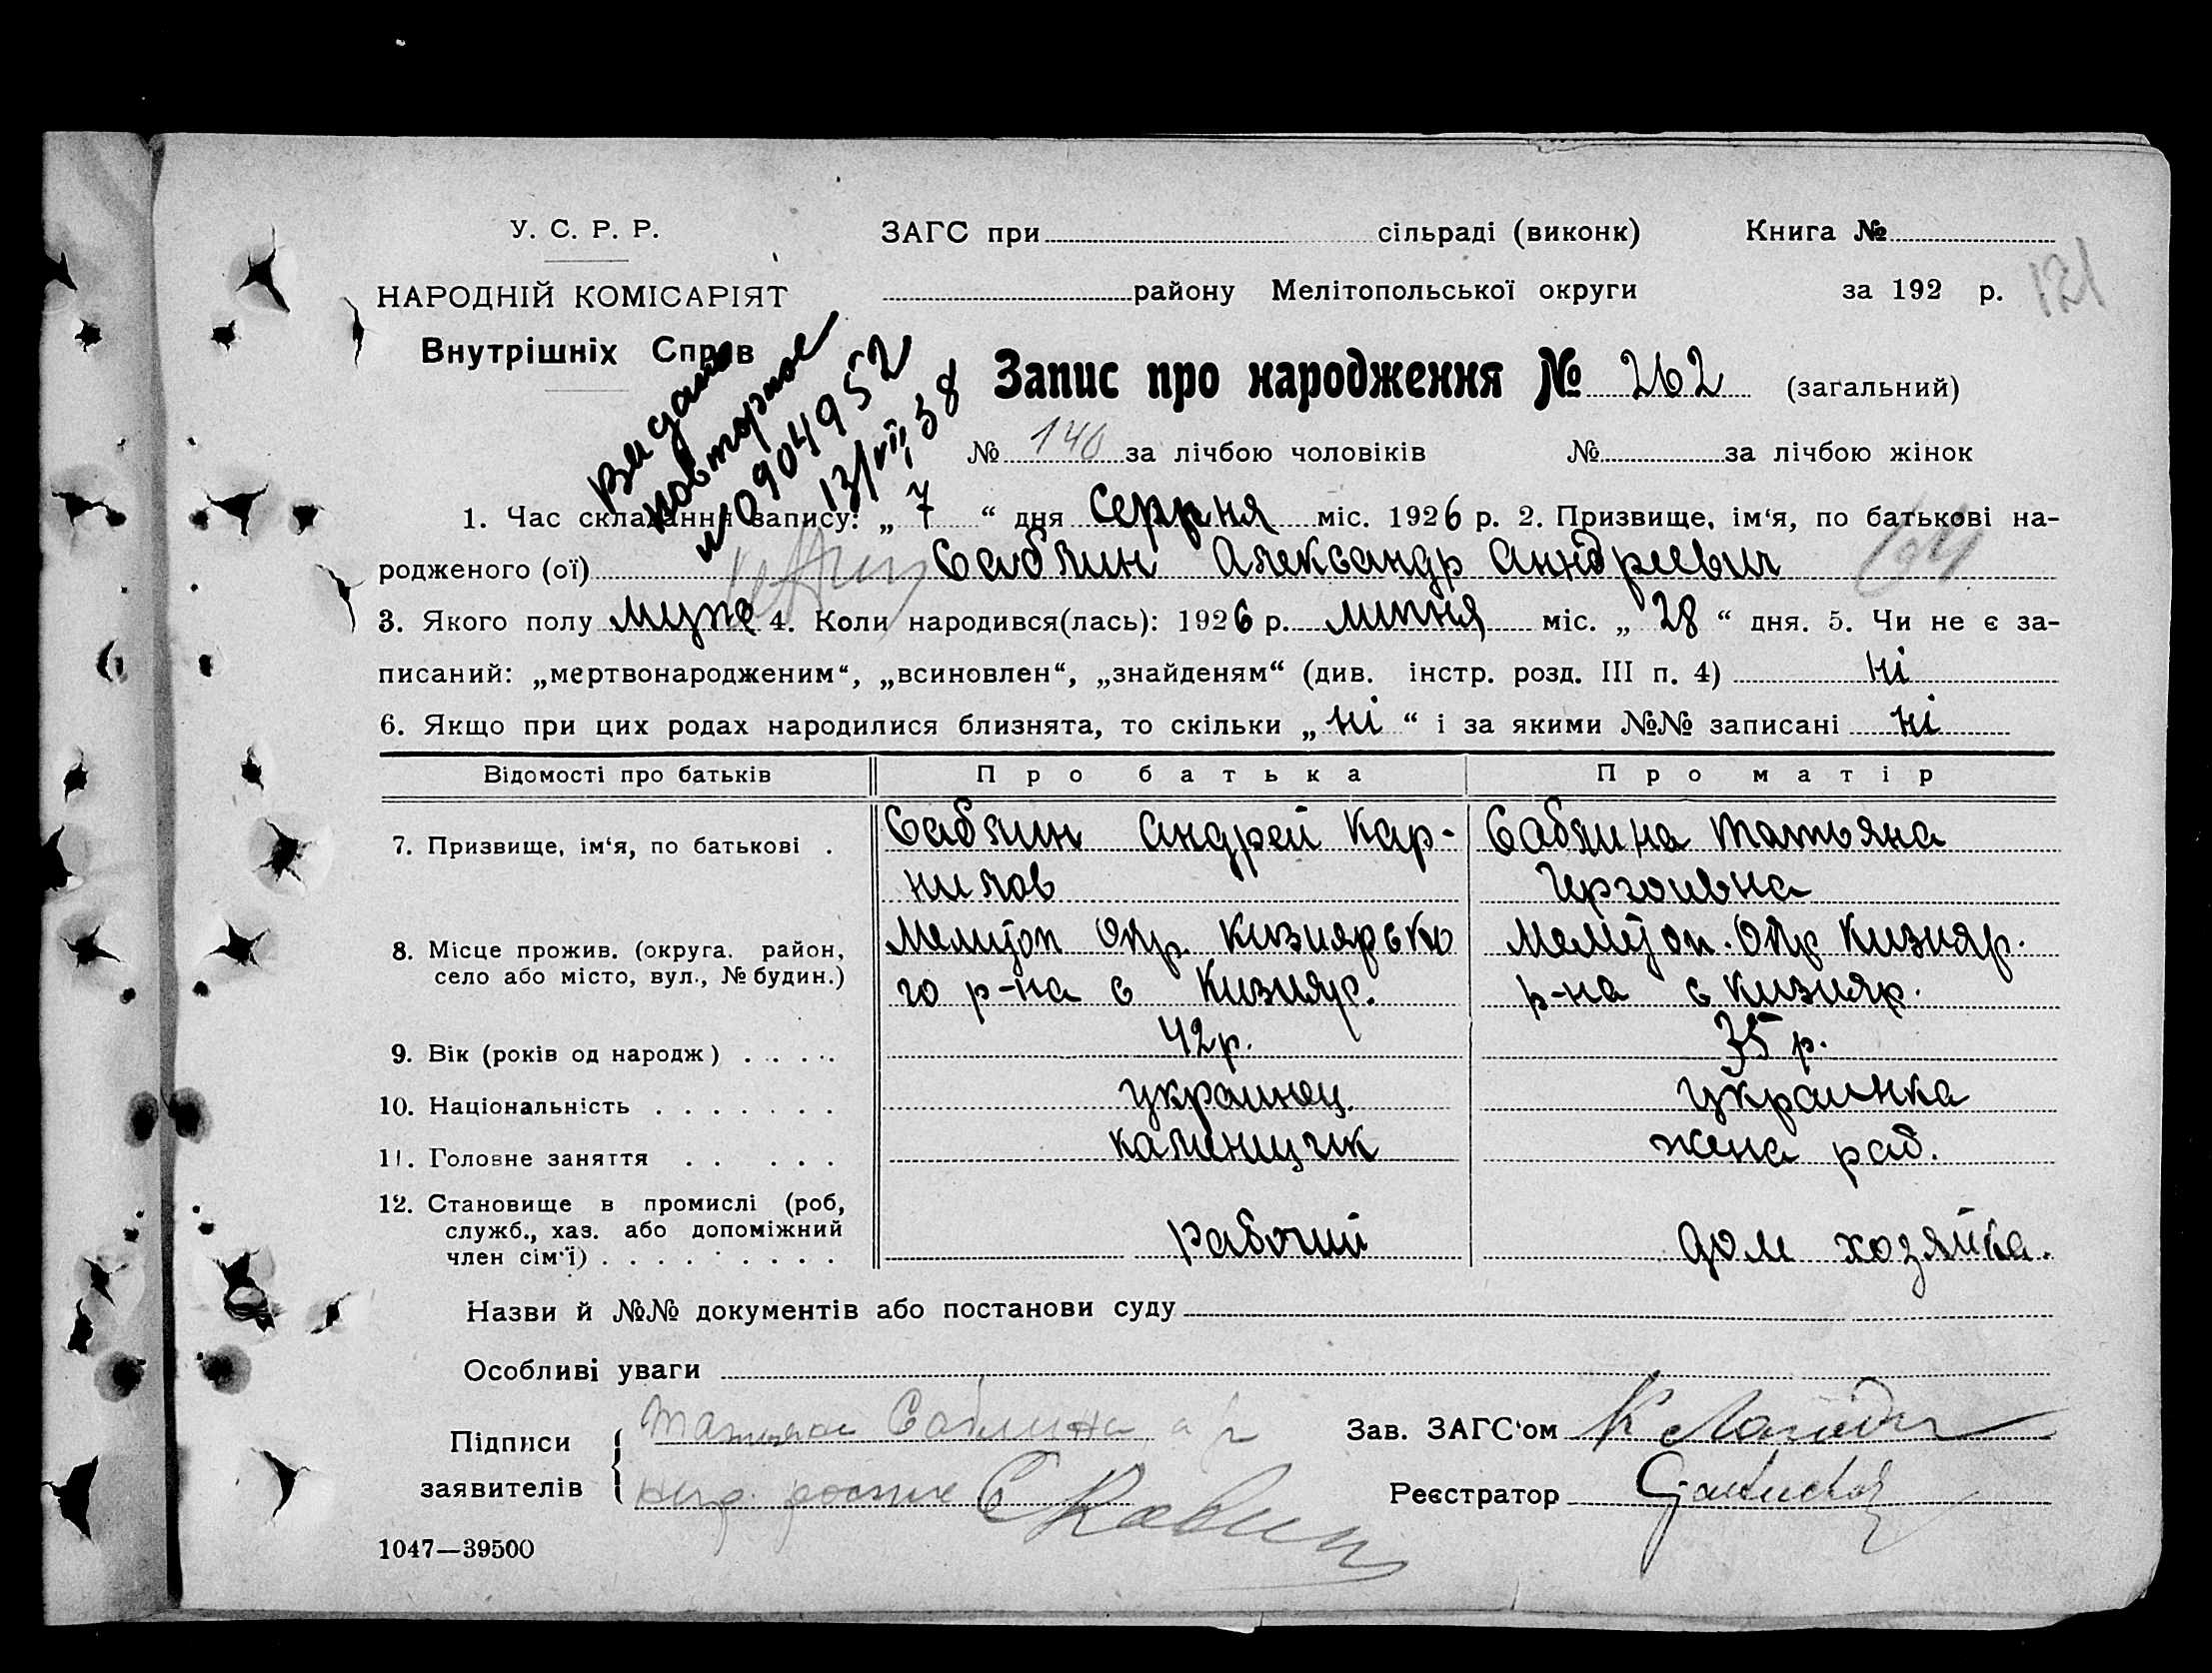 У. С. Р. Р.
ЗАГС при сільраді (виконк)
Книга №
НАРОДНІЙ КОМІСАРІЯТ
району Мелітопольської округи
за 192 р.
121
Внутрішніх Справ
Видано
повторное
№ 0904952
13/VII 38
Запис про народження № 262 (загальний)
№ 140 за лічбою чоловіків № за лічбою жінок
1. Час складання запису: „ 7 “ дня Серрня міс. 1926 р. 2. Призвище, ім‘я, по батькові на-
родженого (ої) Саблин Александр Анндреевич
3. Якого полу муже 4. Коли народився(лась): 1926 р. липня міс. „ 28 “ дня. 5. Чи не є за-
писаний: „мертвонародженим“, „всиновлен“, „знайденям“ (див. інстр. розд. III п. 4) ні
6. Якщо при цих родах народилися близнята, то скільки „ ні “ і за якими №№ записані ні
Відомості про батьків Про батька Про матір
7. Призвище, ім‘я, по батькові . Саблин Андрей Кар- Саблина Татьяна
нилов
8. Місце прожив. (округа. район, Мелитоп Окр. Кизиярсько Мелитоп. Окр Кизияр.
село або місто, вул., № будин.) го р-на с Кизияр. р-на с Кизияр.
9. Вік (років од народж) . . . . 42р. 35 р.
10. Національність . . . . . . . украинец. украинка
11. Головне заняття . . . . . каменщик жена раб.
12. Становище в промислі (роб,
служб., хаз. або допоміжний
член сім‘ї) . . . . . . . . . рабочий дом хозяйка.
Назви й №№ документів або постанови суду
Особливі уваги
Підписи Татьяна Саблина а/р
Зав. ЗАГС‘ом
заявителів
Реєстратор
1047—39500